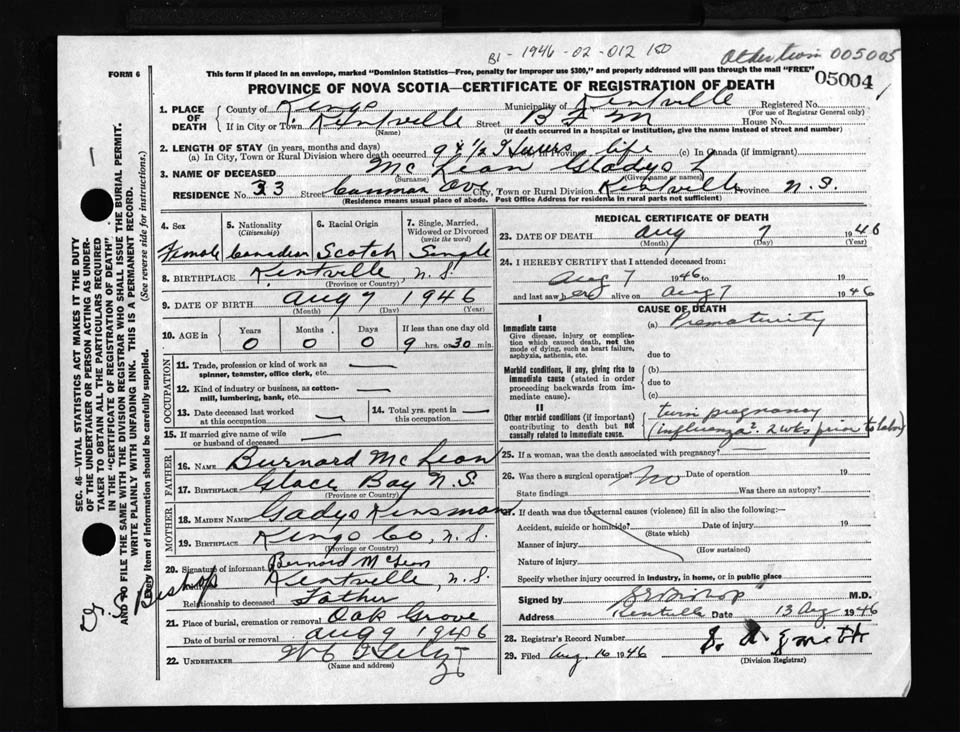 B1 - 1946 - 02 - 012 150
Other twin 005005
FORM 6
This form if placed in an envelope, marked "Dominion Statistics—Free, penalty for improper use $300," and properly addressed will pass through the mail "FREE"
05004
PROVINCE OF NOVA SCOTIA—CERTIFICATE OF REGISTRATION OF DEATH
1. PLACE OF DEATH County of Kings Municipality of Kentville Registered No.
(For use of Registrar General only)
If in City or Town Kentville Street B F M House No.
(Name) (If death occurred in a hospital or institution, give the name instead of street and number)
2. LENGTH OF STAY (in years, months and days)
(a) In City, Town or Rural Division where death occurred 9 & 1/2 Hours in Province life (c) In Canada (if immigrant)
3. NAME OF DECEASED McLean Gladys L
(Surname) (Given name or names)
RESIDENCE No. 33 Street Ave City, Town or Rural Division Kentville Province N.S.
(Residence means usual place of abode. Post Office Address for residents in rural parts not sufficient)
4. Sex 5. Nationality (Citizenship) 6. Racial Origin 7. Single, Married, Widowed or Divorced (write the word)
Female Canadian Scotch Single
8. BIRTHPLACE Kentville, N.S.
(Province or Country)
9. DATE OF BIRTH Aug 7 1946
(Month) (Day) (Year)
10. AGE in Years Months Days If less than one day old
0 0 0 9 hrs. or 30 min.
OCCUPATION
11. Trade, profession or kind of work as spinner, teamster, office clerk, etc. —
12. Kind of industry or business, as cotton-mill, lumbering, bank, etc. —
13. Date deceased last worked at this occupation — 14. Total yrs. spent in this occupation —
15. If married give name of wife or husband of deceased —
FATHER
16. NAME Burnard McLean
17. BIRTHPLACE Glace Bay N.S.
(Province or Country)
MOTHER
18. MAIDEN NAME Gladys Kinsman
19. BIRTHPLACE Kings Co, N.S.
(Province or Country)
20. Signature of informant Bernard McLean
Kentville, N.S.
Relationship to deceased Father
21. Place of burial, cremation or removal Oak Grove
Date of burial or removal Aug 9 1946
22. UNDERTAKER
(Name and address)
MEDICAL CERTIFICATE OF DEATH
23. DATE OF DEATH Aug 7 1946
(Month) (Day) (Year)
24. I HEREBY CERTIFY that I attended deceased from:
Aug 7 1946 to 19
and last saw her alive on Aug 7 1946
CAUSE OF DEATH
I
Immediate cause
Give disease, injury or complication which caused death, not the mode of dying, such as heart failure, asphyxia, asthenia, etc.
(a) Prematurity
due to
Morbid conditions, if any, giving rise to immediate cause (stated in order proceeding backwards from immediate cause).
(b)
due to
(c)
II
Other morbid conditions (if important) contributing to death but not causally related to immediate cause.
twin pregnancy
(influenza? 2 wks prior to labor)
25. If a woman, was the death associated with pregnancy? —
26. Was there a surgical operation? no Date of operation 19
State findings Was there an autopsy?
27. If death was due to external causes (violence) fill in also the following:—
Accident, suicide or homicide? Date of injury 19
(State which)
Manner of injury
(How sustained)
Nature of injury
Specify whether injury occurred in industry, in home, or in public place
Signed by Bishop M.D.
Address Kentville Date 13 Aug 1946
28. Registrar's Record Number
29. Filed Aug. 16 1946
(Division Registrar)
SEC. 46—VITAL STATISTICS ACT MAKES IT THE DUTY OF THE UNDERTAKER OR PERSON ACTING AS UNDERTAKER TO OBTAIN ALL THE PARTICULARS REQUIRED IN THE "CERTIFICATE OF REGISTRATION OF DEATH" AND TO FILE THE SAME WITH THE DIVISION REGISTRAR WHO SHALL ISSUE THE BURIAL PERMIT.
WRITE PLAINLY WITH UNFADING INK. THIS IS A PERMANENT RECORD.
Every item of information should be carefully supplied. (See reverse side for instructions.)
Bishop